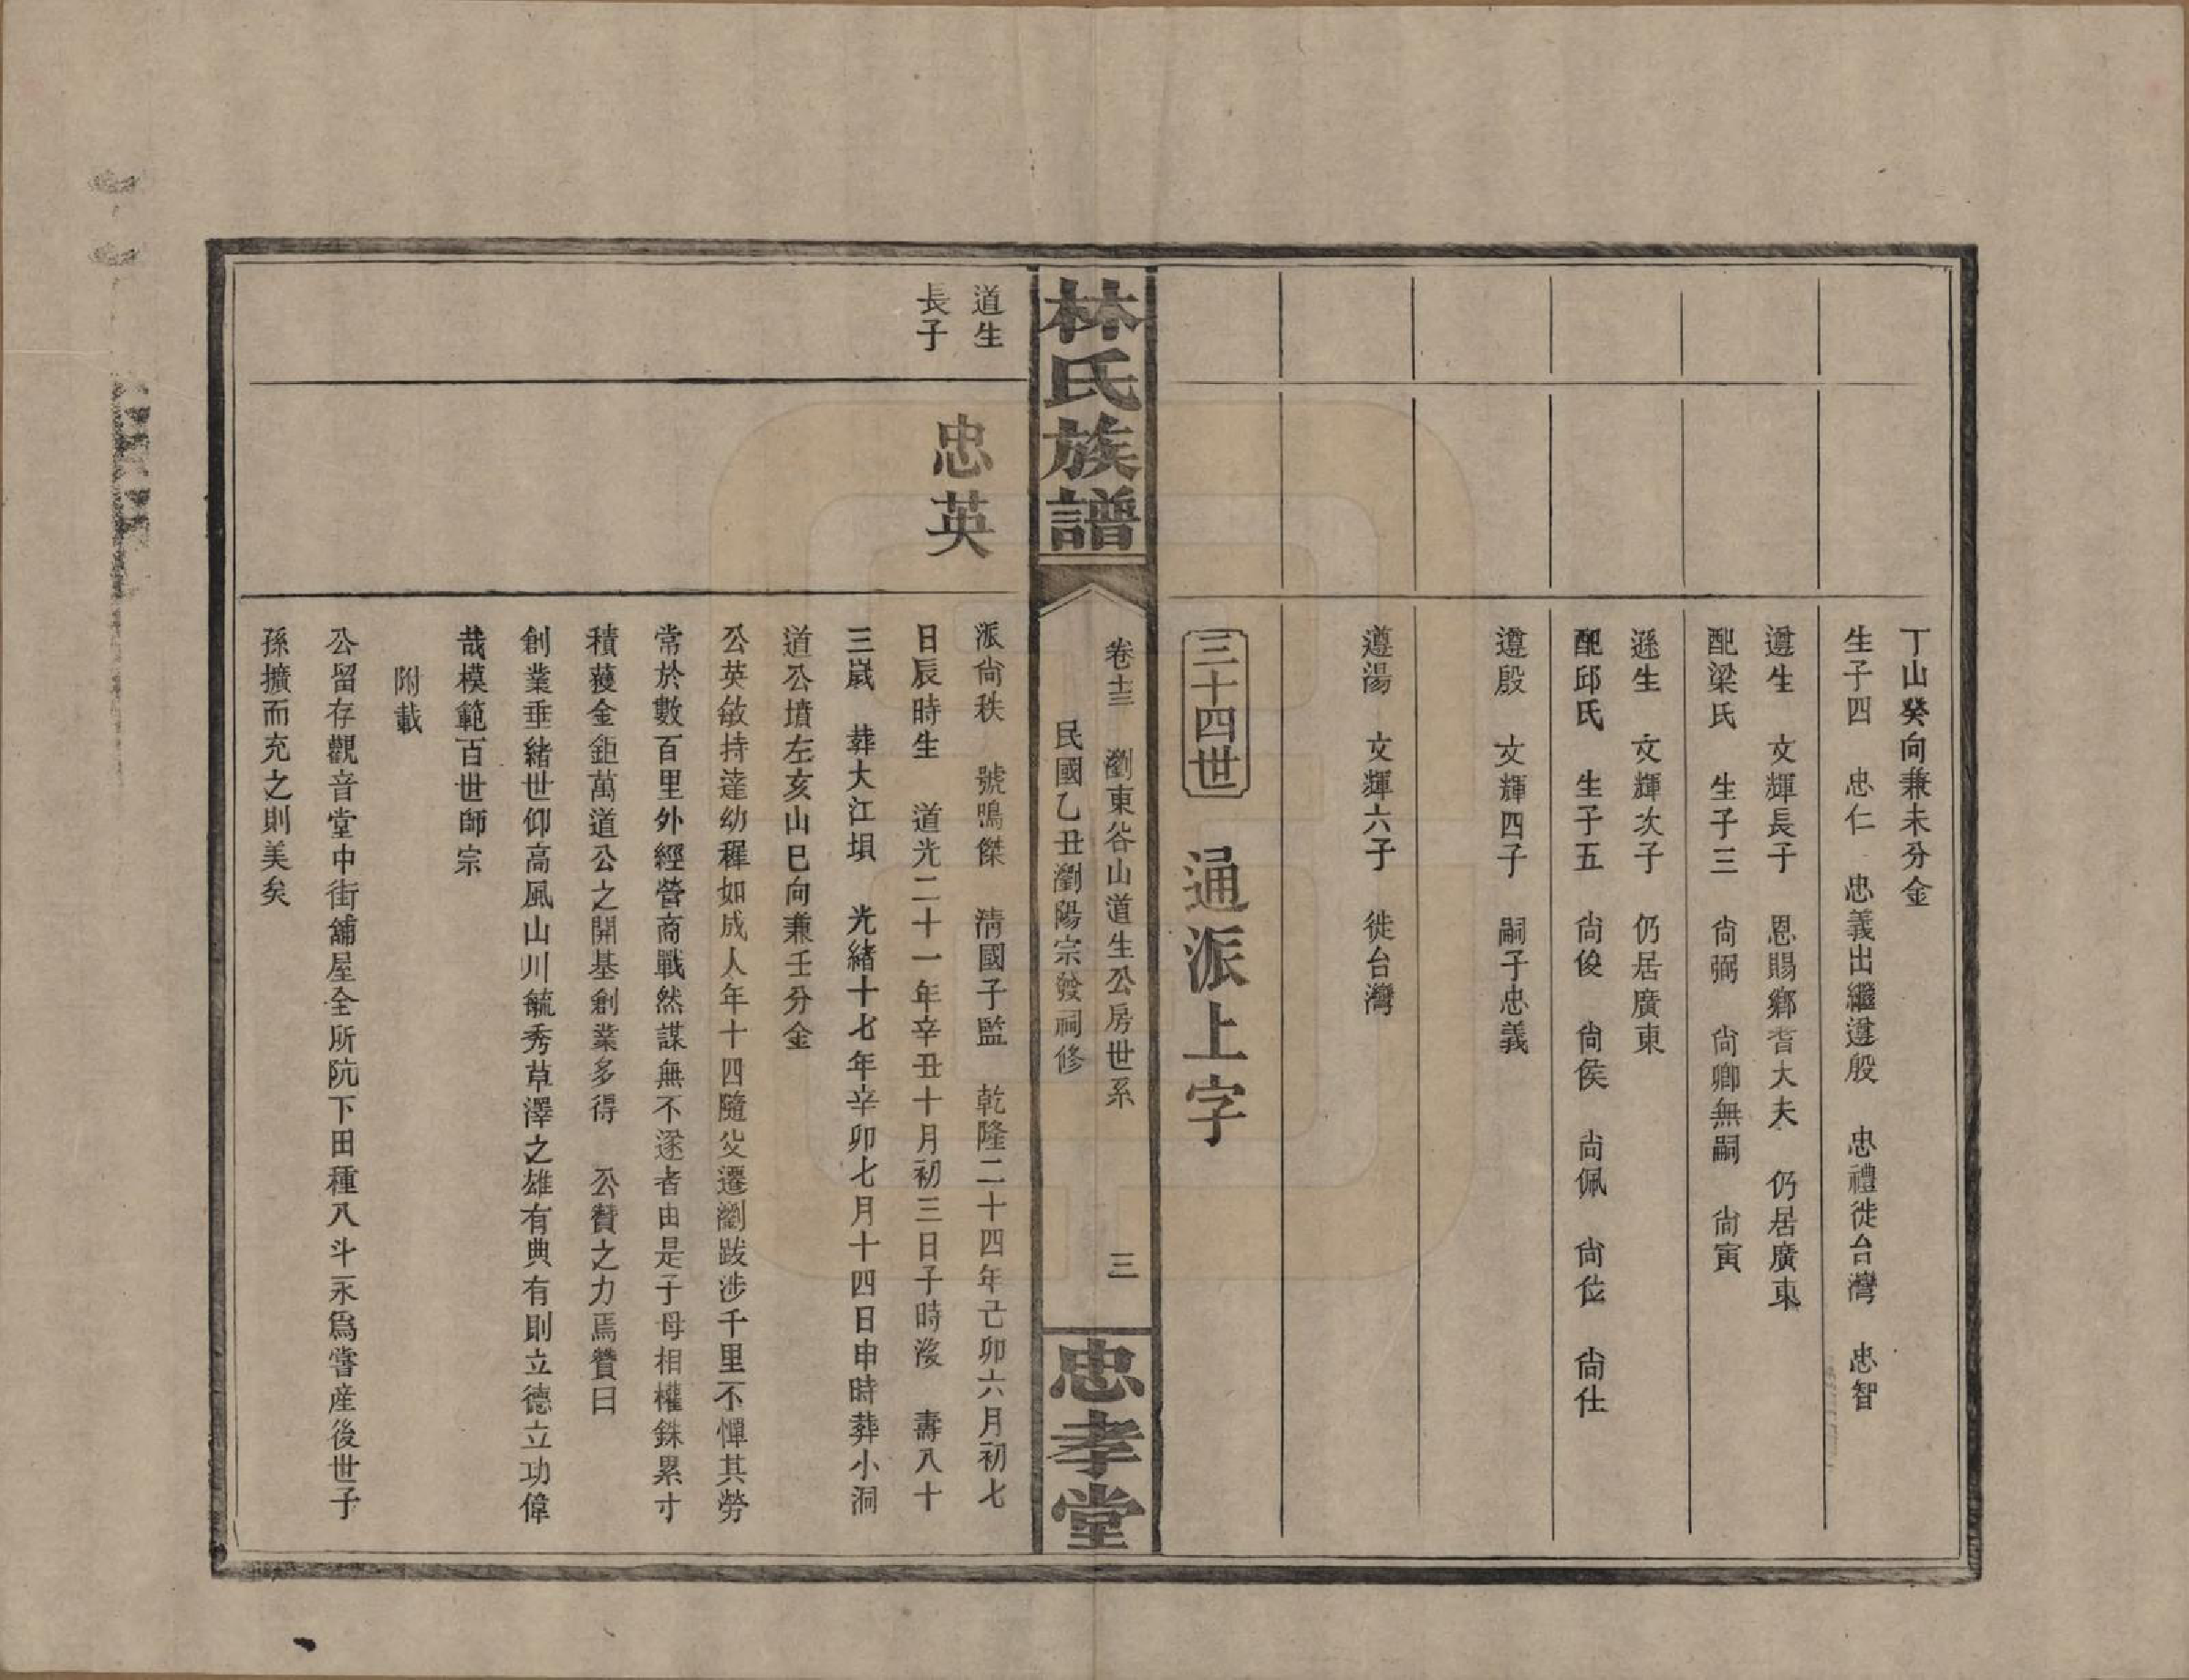 丁山癸向兼未分金
生子四　忠仁　忠義出繼遵殷　忠禮徙台灣　忠智
遵生　文輝長子　恩賜鄉耆大夫　仍居廣東
配梁氏　生子三　尙弼　尙卿無嗣　尙寅
遜生　文輝次子　仍居廣東
配邱氏　生子五　尙俊　尙侯　尙佩　尙位　尙仕
遵殷　文輝四子　嗣子忠義
遵湯　文輝六子　徙台灣
三十四世　通派上字
林氏族譜
卷十三　瀏東谷山道生公房世系　三
民國乙丑瀏陽宗發祠修
忠孝堂
道生
長子
忠英
派尙秩　號鳴傑　淸國子監　乾隆二十四年己卯六月初七
日辰時生　道光二十一年辛丑十月初三日子時歿　壽八十
三嵗　葬大江埧　光緒十七年辛卯七月十四日申時葬小洞
道公墳左亥山巳向兼壬分金
公英敏持達幼穉如成人年十四隨父遷瀏跋涉千里不憚其勞
常於數百里外經營商戰然謀無不遂者由是子母相權銖累寸
積獲金鉅萬道公之開基創業多得　公贊之力焉贊曰
創業垂緒世仰高風山川毓秀草澤之雄有典有則立德立功偉
哉模範百世師宗
附載
公留存觀音堂中街舖屋全所阬下田種八斗永爲嘗産後世子
孫擴而充之則美矣